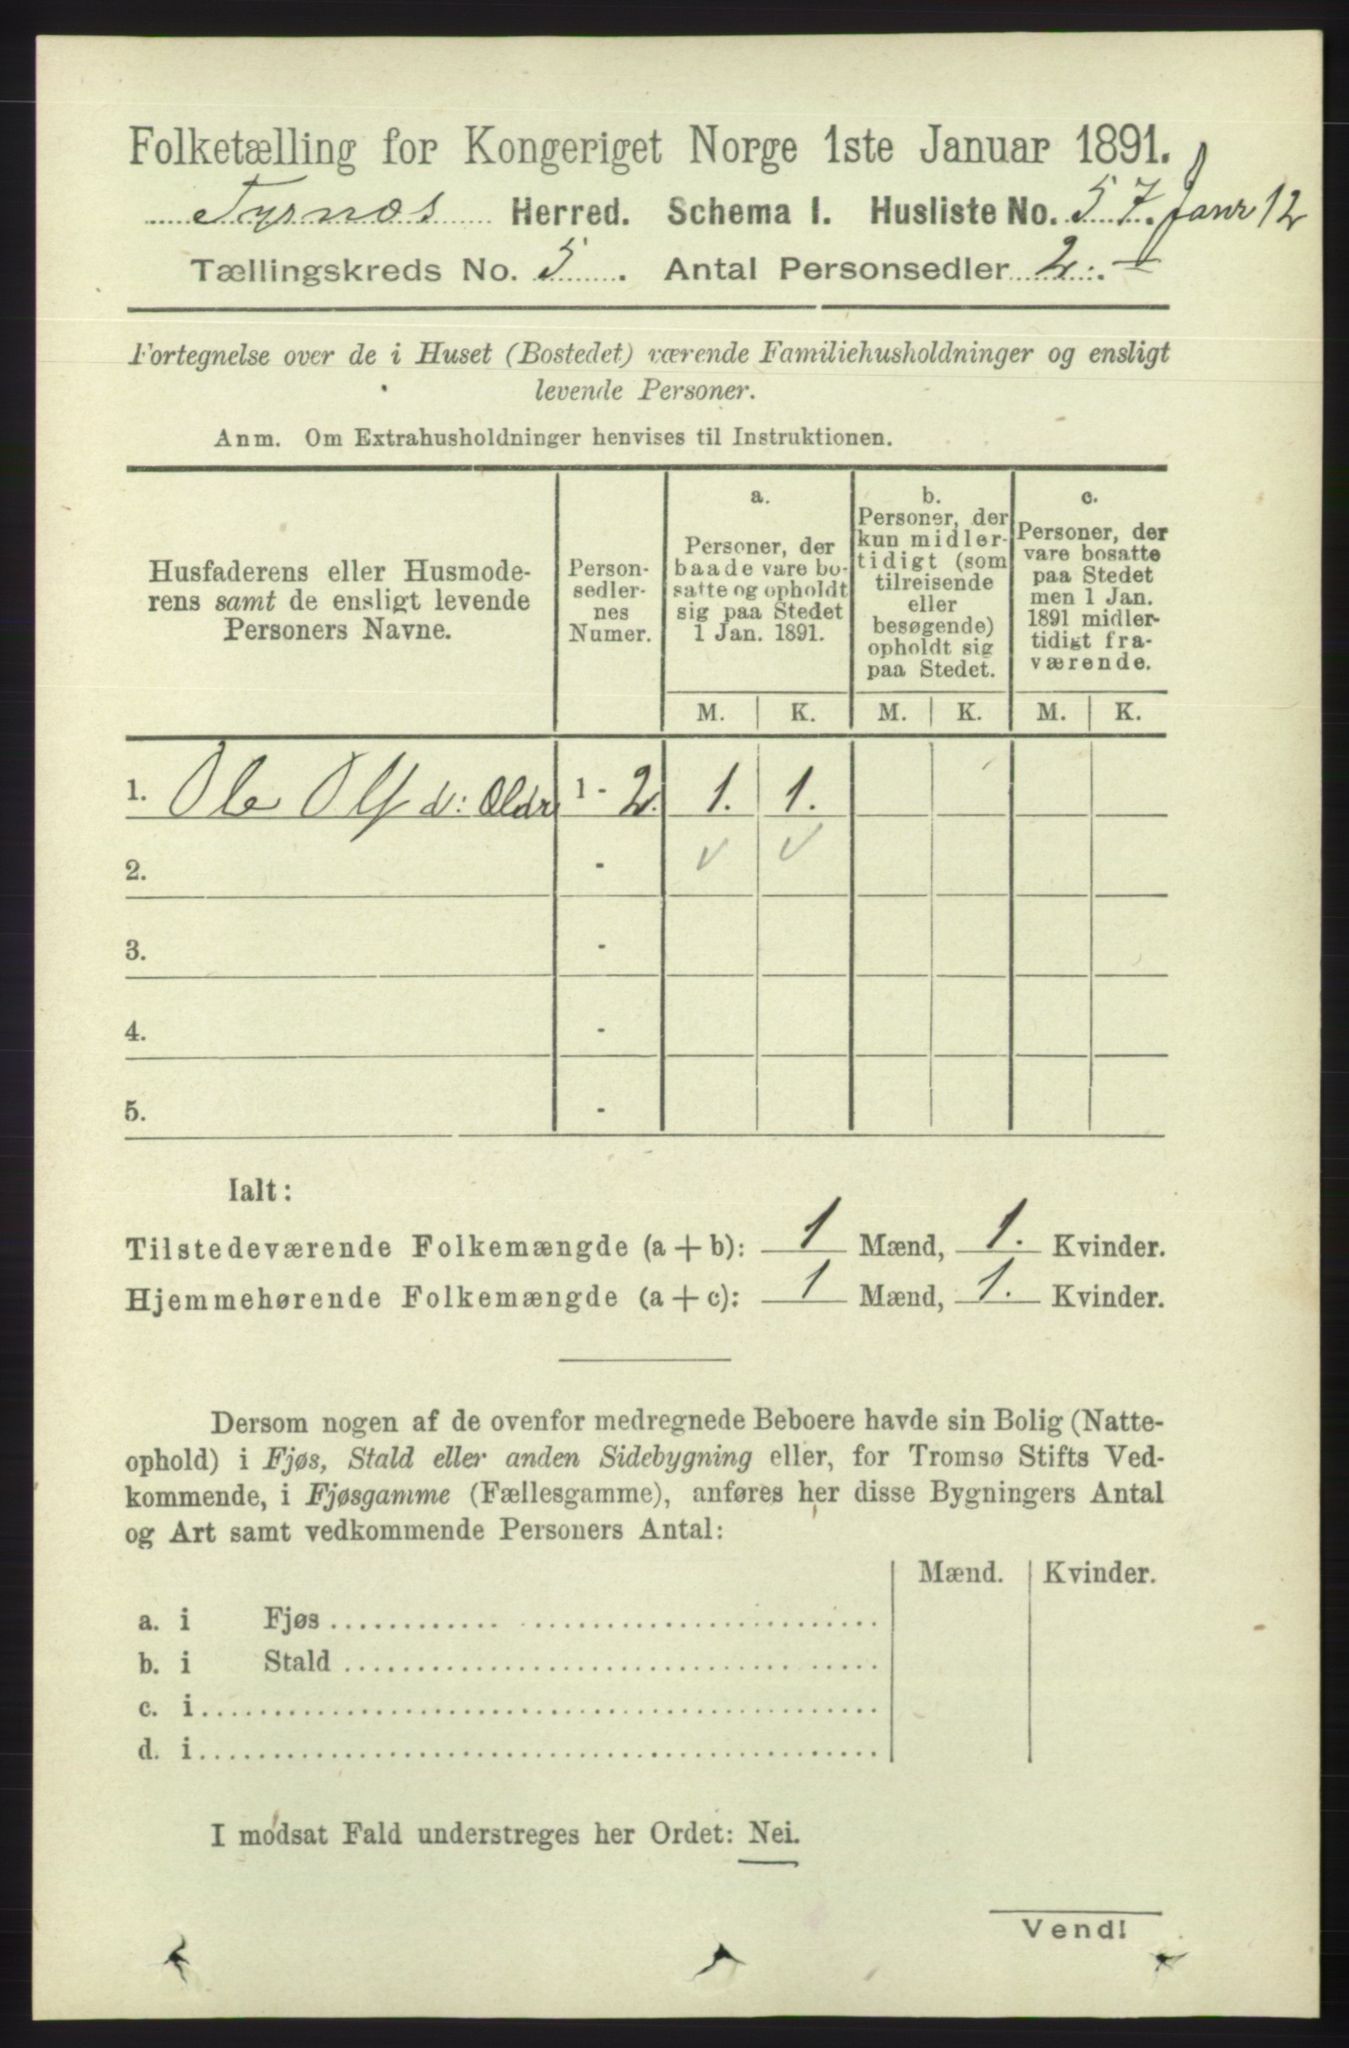 Folketælling for Kongeriget Norge 1ste Januar 1891.
Tysnæs Herred. Schema I. Husliste No. 57. Janr 12
Tællingskreds No. 5. Antal Personsedler 2.
Fortegnelse over de i Huset (Bostedet) værende Familiehusholdninger og ensligt
levende Personer.
Anm. Om Extrahusholdninger henvises til Instruktionen.
Husfaderens eller Husmode-
rens samt de ensligt levende
Personers Navne.
Person-
sedler-
nes
Numer.
a.
Personer, der
baade vare bo-
satte og opholdt
sig paa Stedet
1 Jan. 1891.
b.
Personer, der
kun midler-
tidigt (som
tilreisende
eller
besøgende)
opholdt sig
paa Stedet.
c.
Personer, der
vare bosatte
paa Stedet
men 1 Jan.
1891 midler-
tidigt fra-
værende.
M. K. M. K. M. K.
1. Ole Ols d: Ældr 1 - 2. 1. 1.
2. - ✓ ✓
3. -
4. -
5. -
Ialt:
Tilstedeværende Folkemængde (a + b): 1 Mænd, 1. Kvinder.
Hjemmehørende Folkemængde (a + c): 1 Mænd, 1. Kvinder.
Dersom nogen af de ovenfor medregnede Beboere havde sin Bolig (Natte-
ophold) i Fjøs, Stald eller anden Sidebygning eller, for Tromsø Stifts Ved-
kommende, i Fjøsgamme (Fællesgamme), anføres her disse Bygningers Antal
og Art samt vedkommende Personers Antal:
Mænd. Kvinder.
a. i Fjøs
b. i Stald
c. i
d. i
I modsat Fald understreges her Ordet: Nei.
Vend!